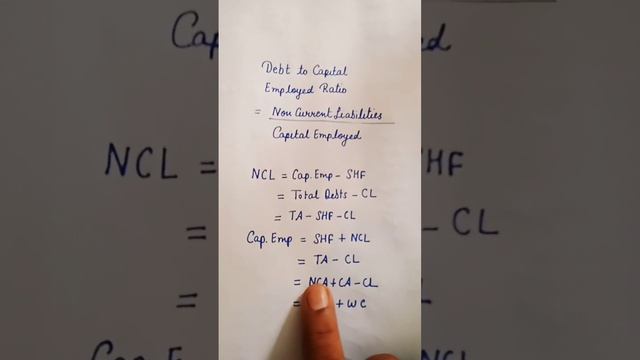 Debt to Capital
Employed Ratio
= Non Current Liabilities
Capital Employed
NCL = Cap. Emp - SHF
= Total Debts - CL
= TA - SHF - CL
Cap. Emp = SHF + NCL
= TA - CL
= NCA + CA - CL
= + WC